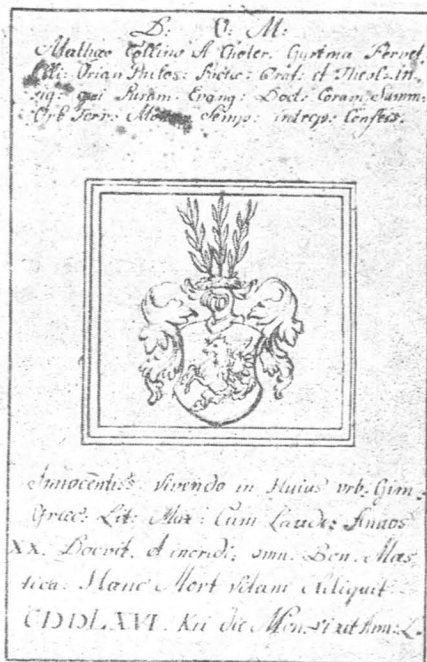 D: O: M:
Mathæo Collino A Choter: Gurtma Fervet
Orian Philos: Poetic: Orat: et Theol: In
sig: qui Puram Evang: Doct: Coram Summ:
Orb Terr: Semp: intrep: Confess.
Innocentiss: vivendo in Huius vrb: Gim:
Græc: Lit: Cum Laude: Annos
XX. Docvit. et incredi: omn: Bon: Mæs
ticia: Hanc Mort Vitam Reliquit
CDDLXVI. Kii die Mon. vixit Ann: L.